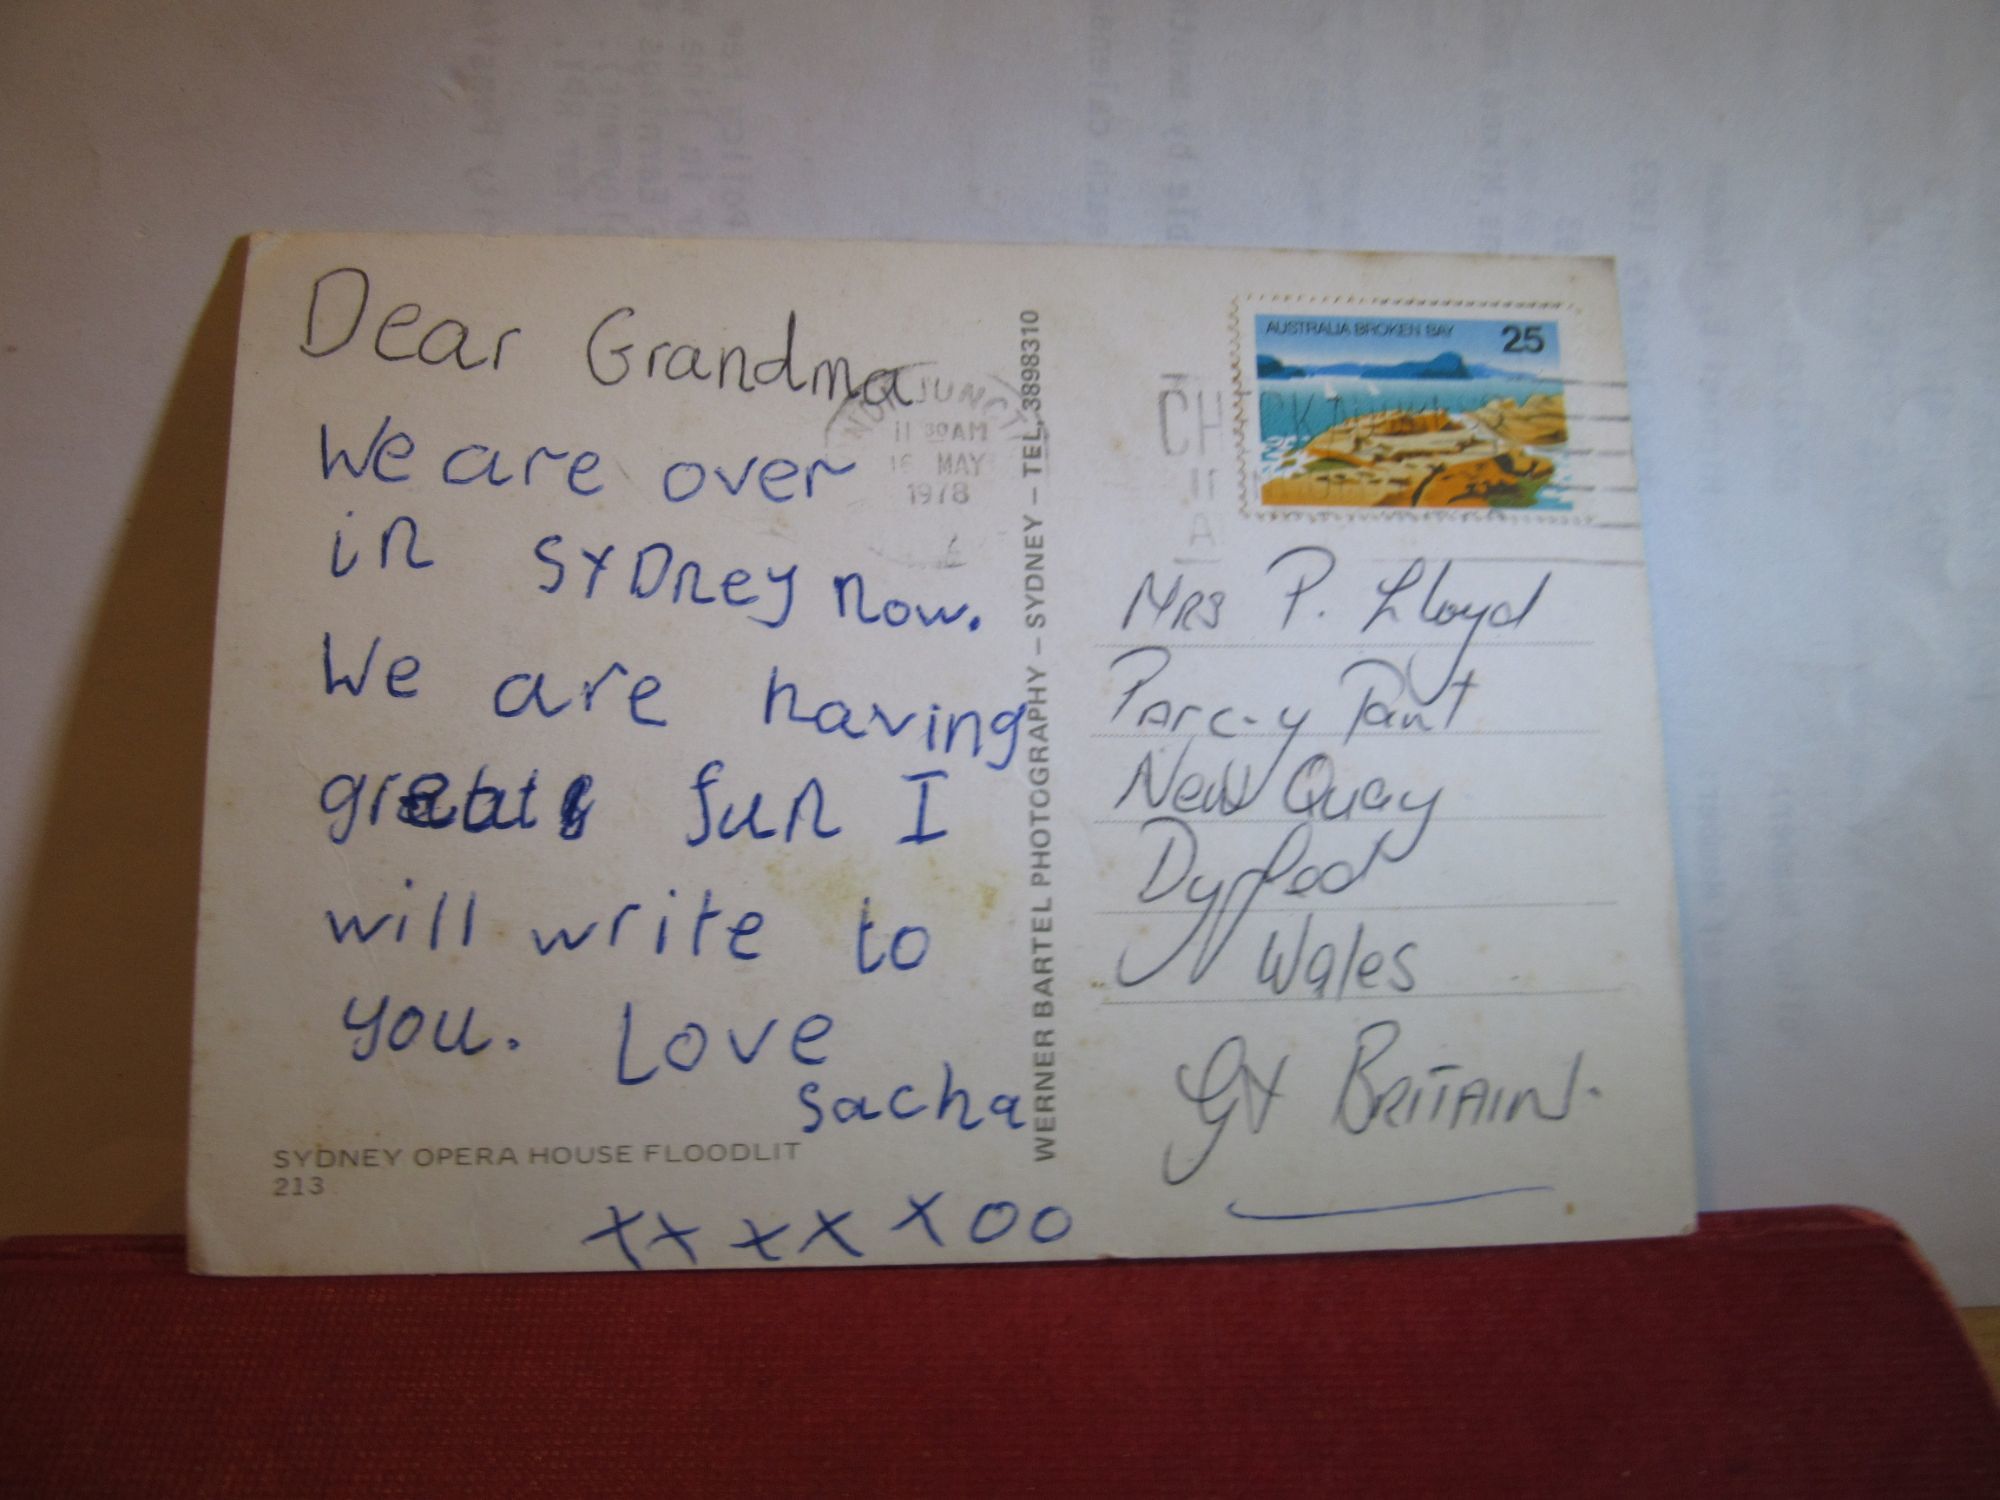 Dear Grandma
We are over
in SYDney now.
We are having
great fun I
will write to
you. Love
sacha
SYDNEY OPERA HOUSE FLOODLIT
213
XX XX X OO
WERNER BARTEL PHOTOGRAPHY – SYDNEY – TEL. 3898310
JUNC
11 30AM
16 MAY
1978
AUSTRALIA BROKEN BAY 25
Mrs P. Lloyd
Parc-y Pant
New Quay
Dyfed
Wales
Gt BRITAIN.